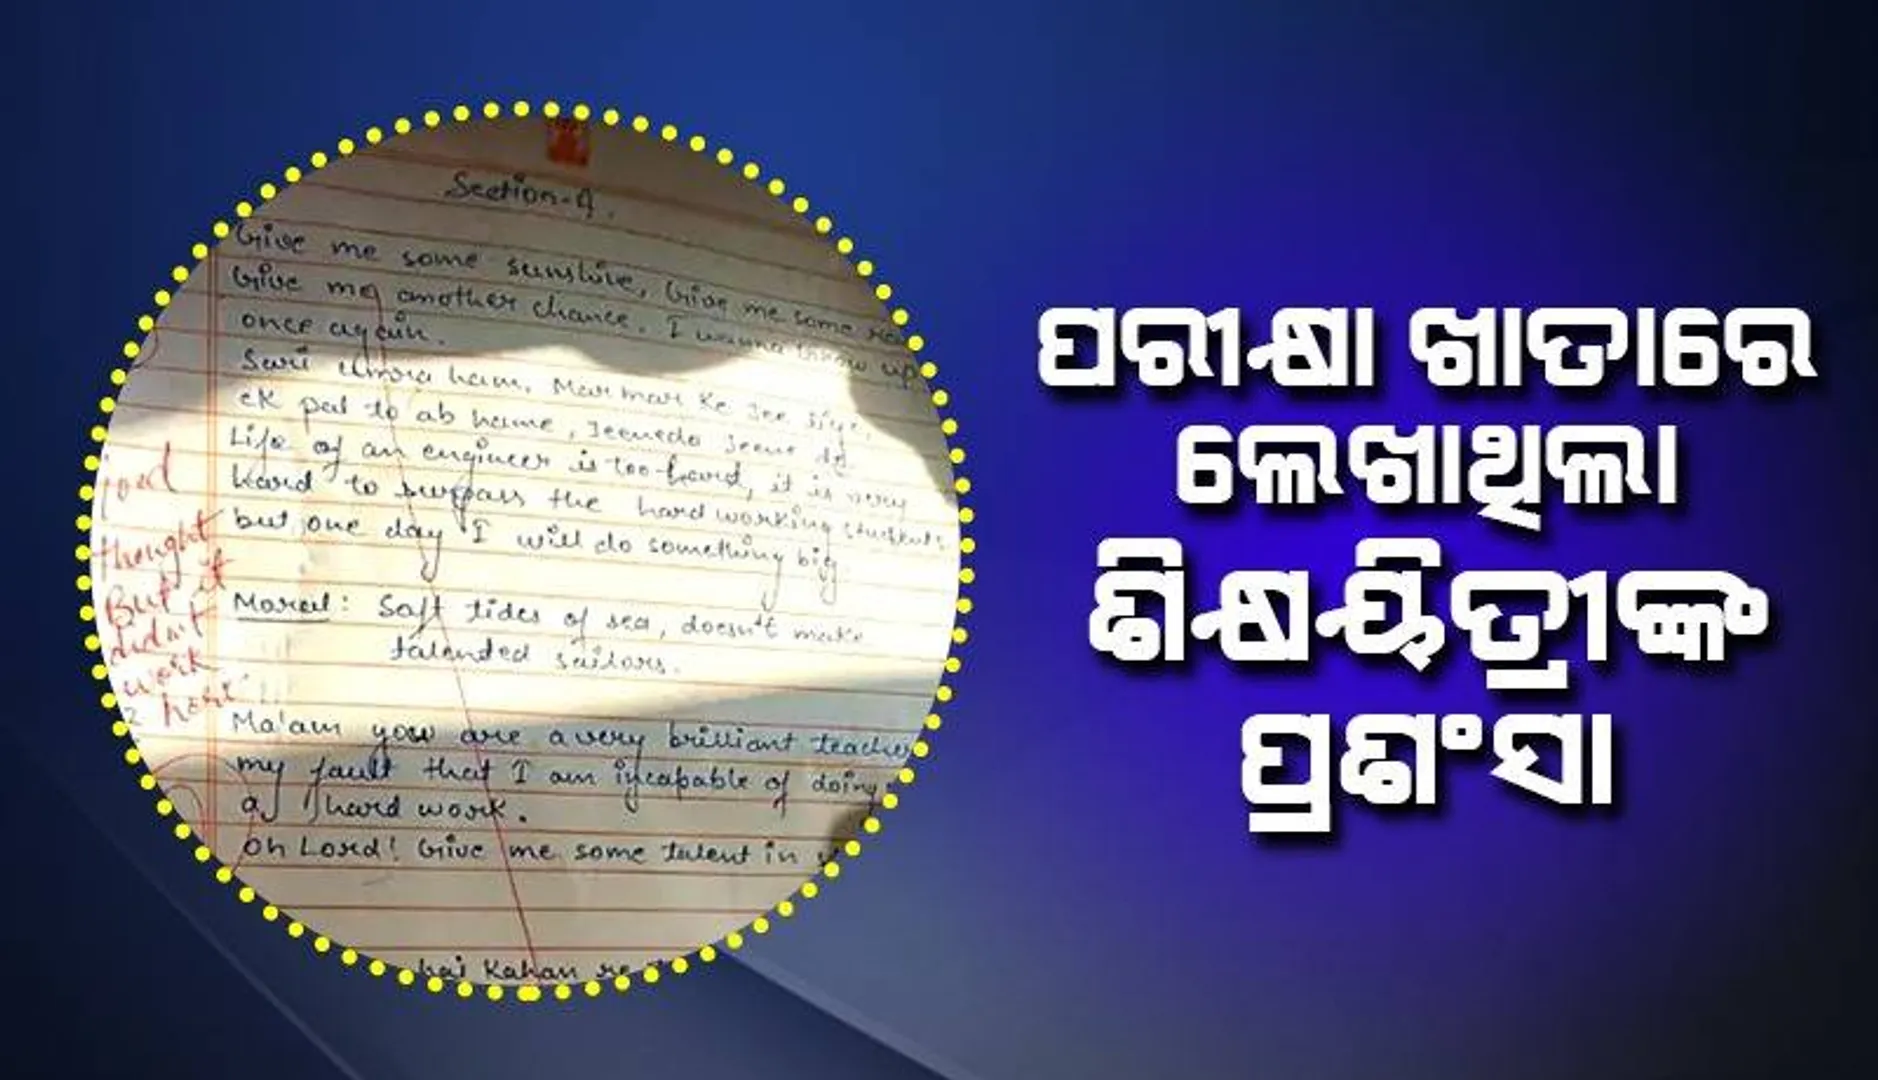 Section-A.
Give me some sunshine, Give me some
Give me another chance. I wanna grow up
once again.
Sari umra ham, Mar mar ke jee liye,
ek pal to ab hame, jeenedo jeene do
Life of an engineer is too-hard, it is very
hard to surpass the hard working students
but one day I will do something big.
Moral: Soft tides of sea, doesn't make
talended sailors.
Ma'am you are a very brilliant teacher
my fault that I am incapable of doing
a hard work.
Oh Lord! Give me some talent in
hai Kahan re
thought
But it
didn't
work
here
ପରୀକ୍ଷା ଖାତାରେ
ଲେଖାଥିଲା
ଶିକ୍ଷୟିତ୍ରୀଙ୍କ
ପ୍ରଶଂସା